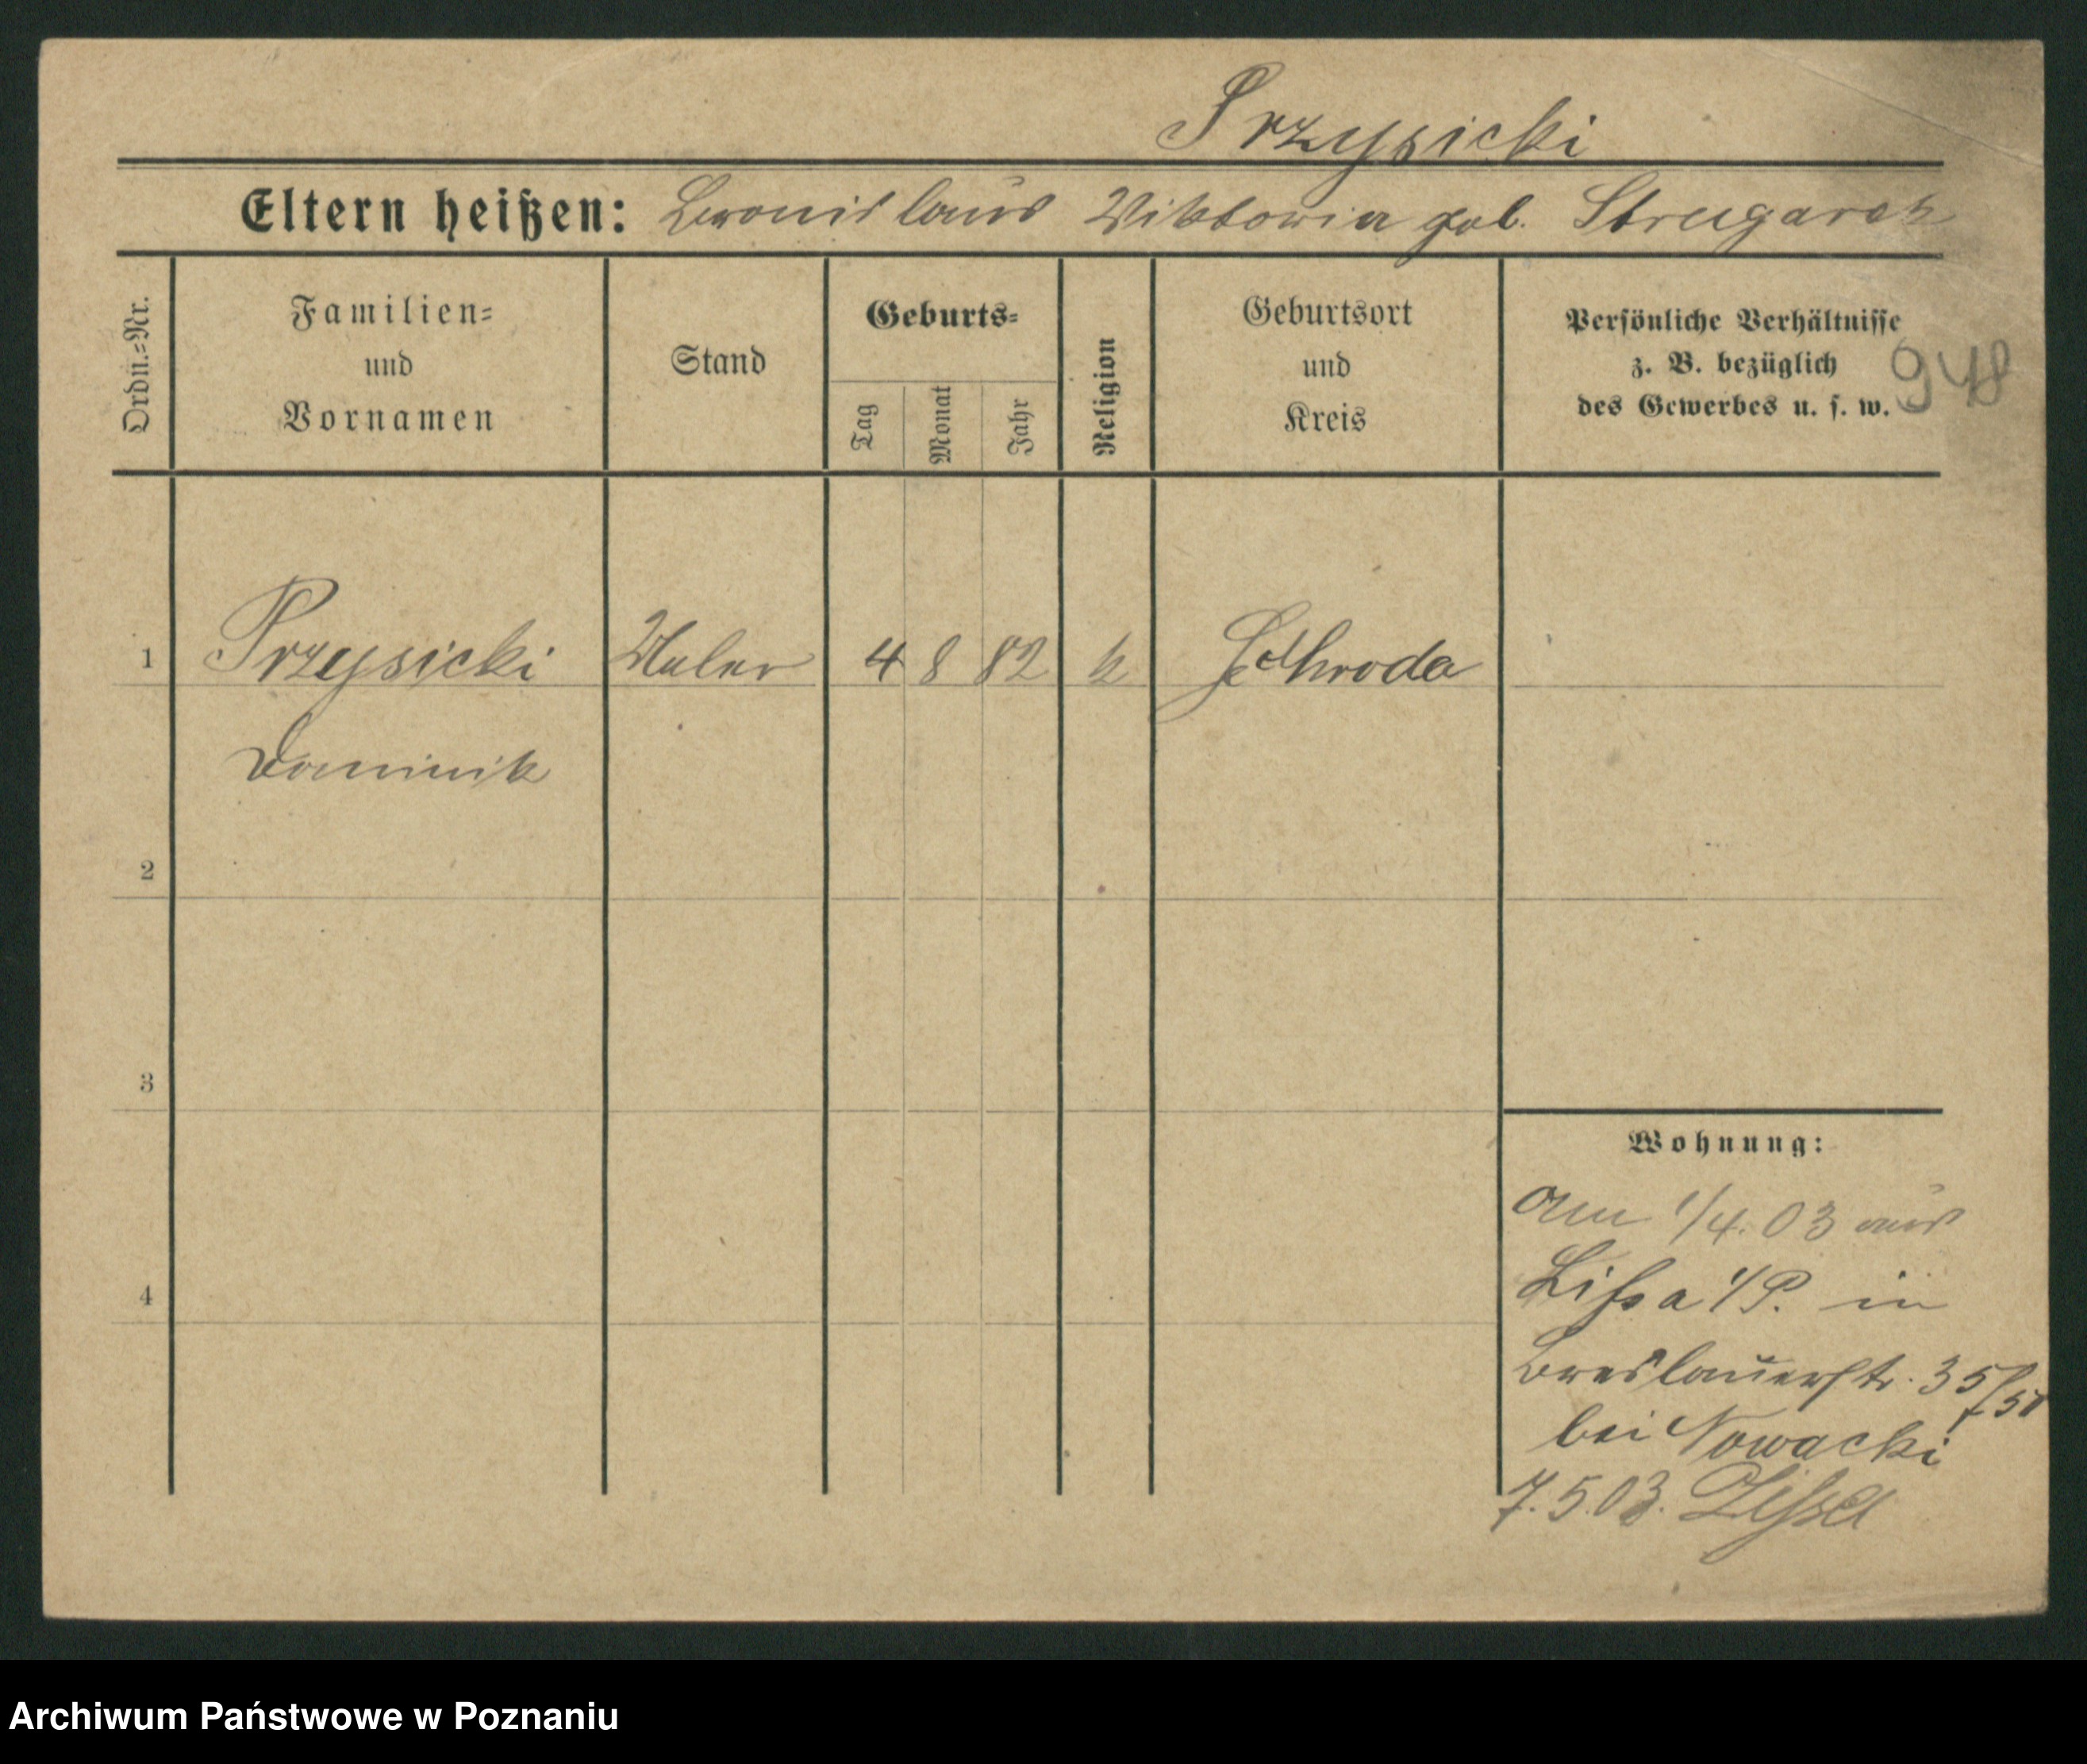 Przysicki
Eltern heißen: Bronislaus Viktoria geb. Strugarek
Ordn.-Nr.
Familien-
und
Vornamen
Stand
Geburts-
Tag
Monat
Jahr
Religion
Geburtsort
und
Kreis
Persönliche Verhältnisse
z. B. bezüglich
des Gewerbes u. s. w.
948
1 Przysicki Maler 4 8 82 k Schroda
Dominik
2
3
4
Wohnung:
am 1/4. 03 aus
Lissa i/P. in
Breslauerstr. 35/
bei Nowacki
7. 5. 03.
Archiwum Państwowe w Poznaniu